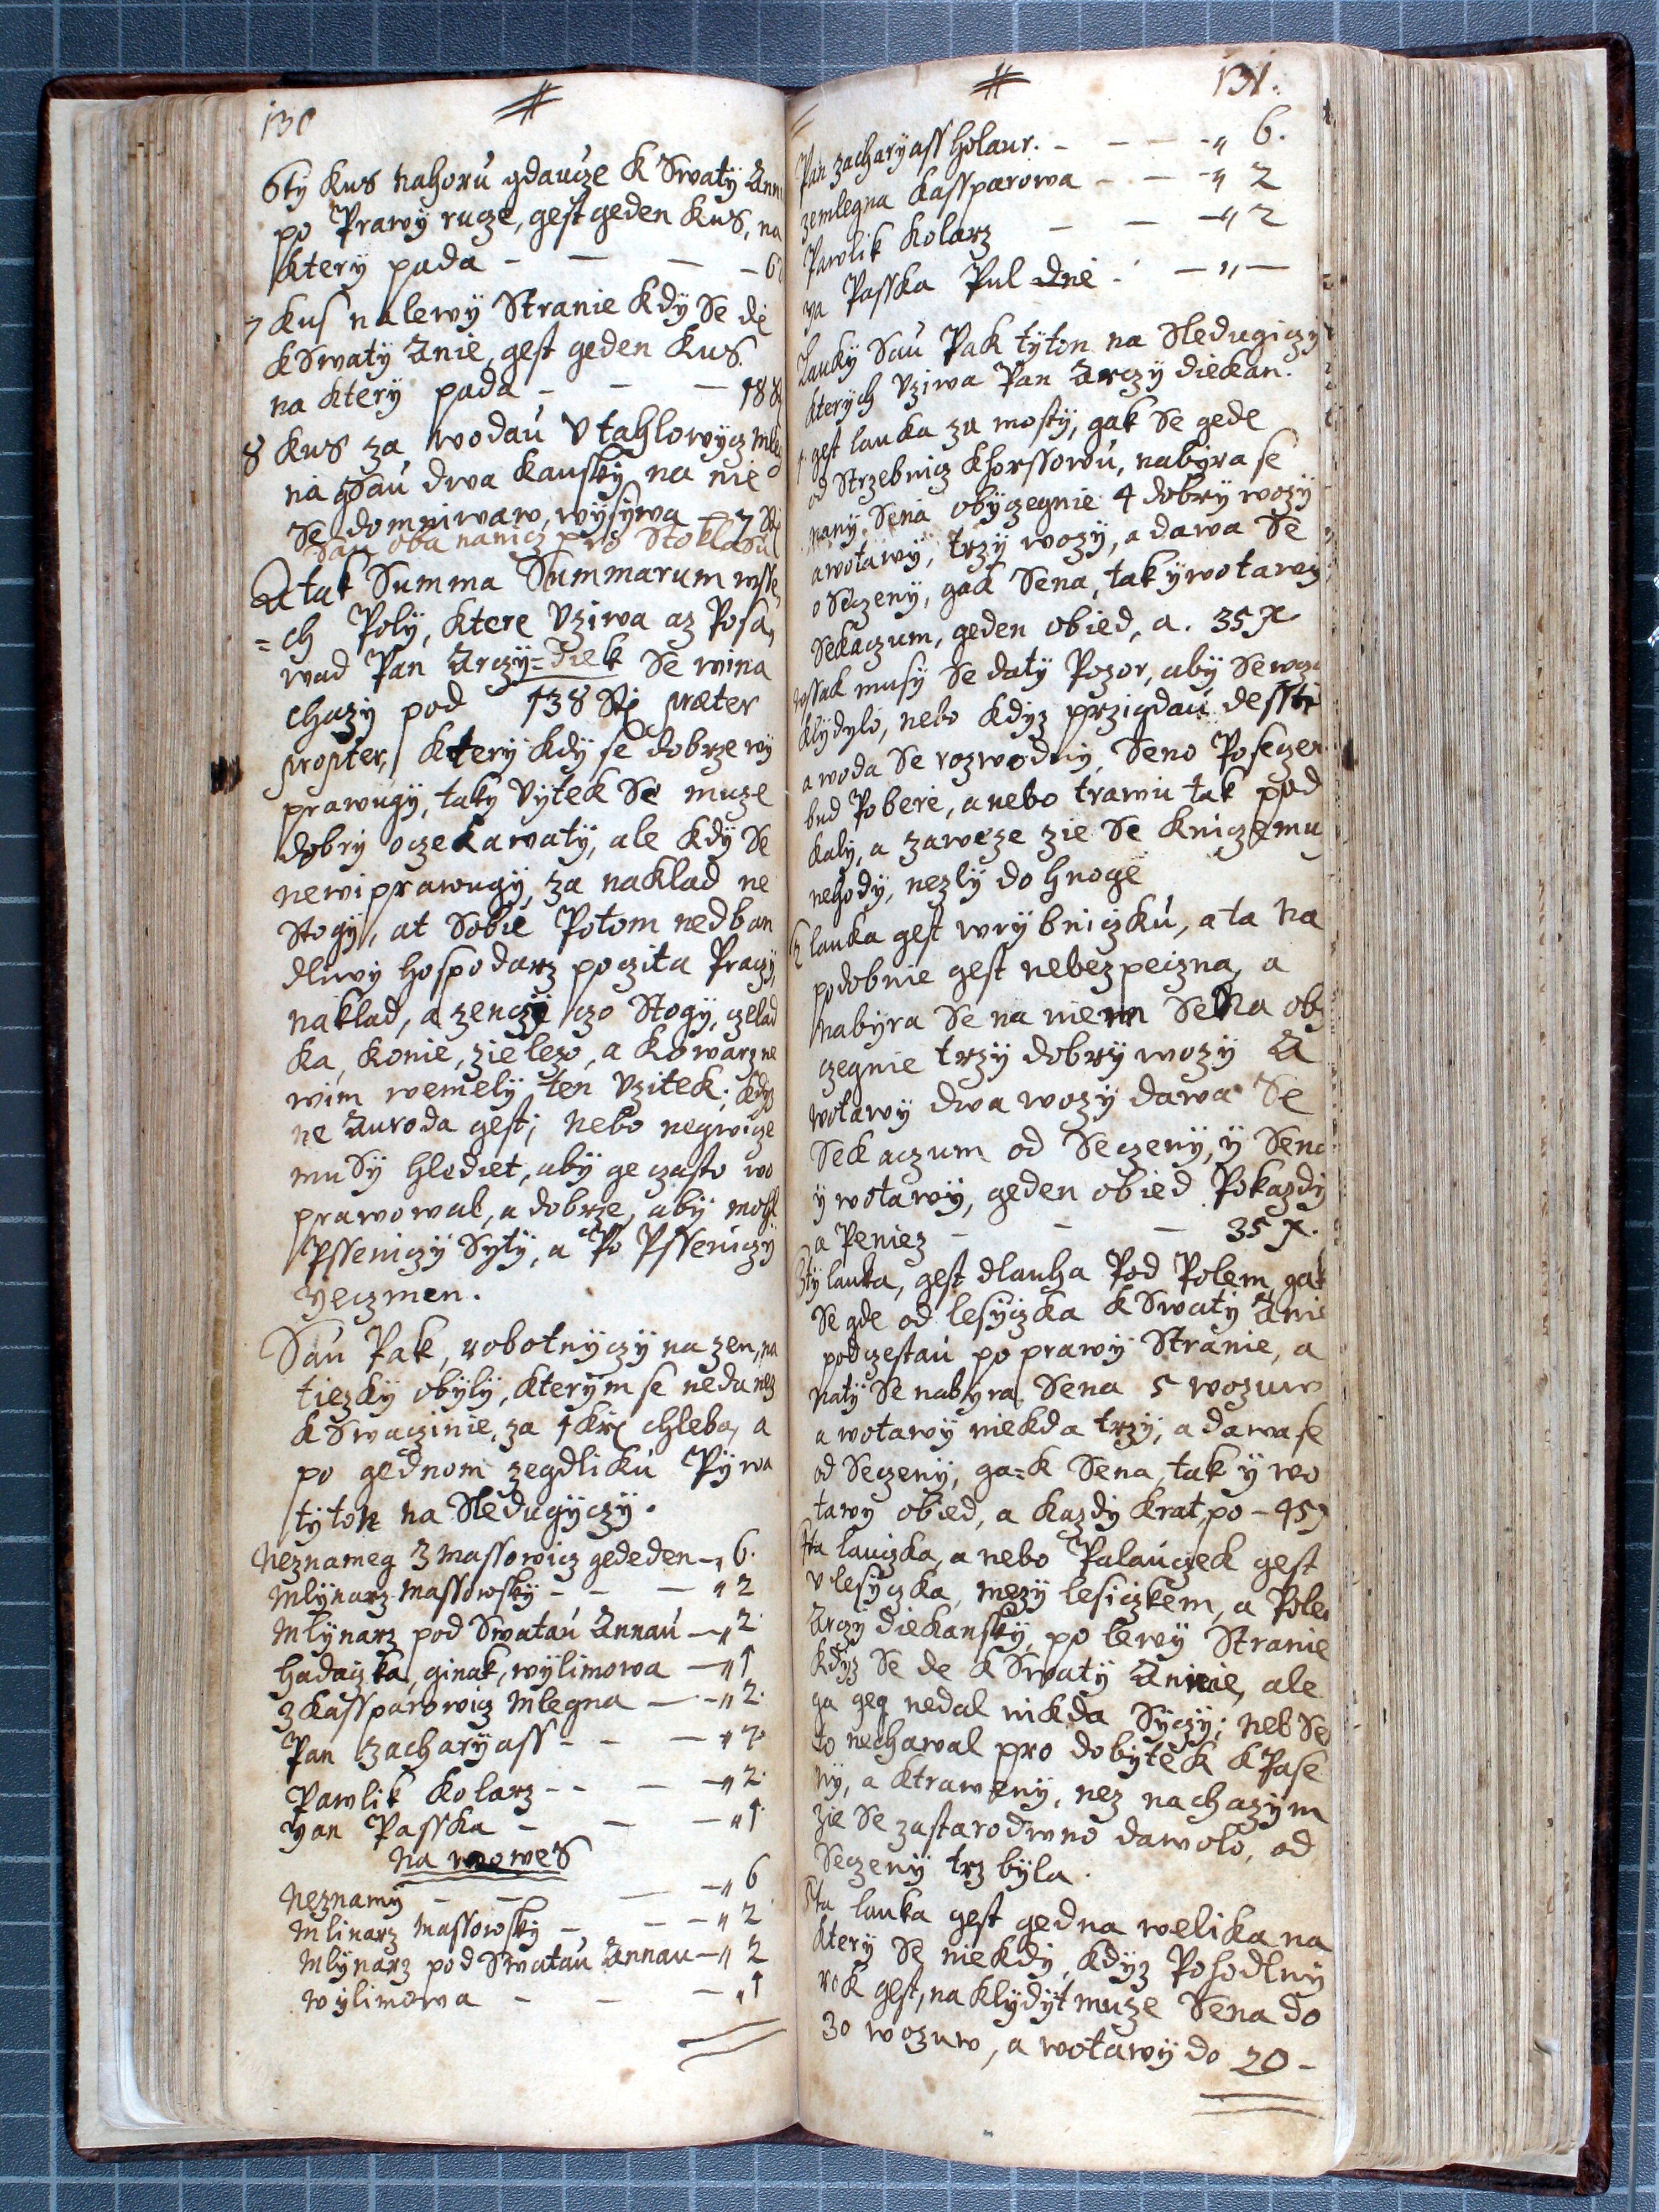 130 #
6ty kus nahorú gdaucze k Swatÿ Ann
po Prawÿ rucze, gest geden kus, na
kterÿ pada - - - - 6
7 kus nalewÿ Stranie kdÿ Se de
kSwatÿ Anie, gest geden kus.
na kterÿ pada - - - 18
8 kus za wodaú v tahlowÿcz mleg
na gsaú dwa kauskÿ, na nie
Se domniwaw, wÿsÿwa - 7 St
Sau oba nanicz pro Stoklasú
A tak Summa Summarum wsse,
= ch Polÿ, ktere vziwa az Posa,
wad Pan Arczÿ=Diek Se wina
chazÿ pod 138 Stj præter
propter, kterÿ kdÿ se dobrze wÿ
prawugÿ, takÿ vÿtek Se muze
dobrÿ oczekawatÿ, ale kdÿ Se
newiprawugÿ, za naklad ne
Stogÿ, at Sobie Potom nedban
dliwÿ hospodarz poczita Praczÿ,
naklad, a zenczÿ czo Stogÿ, czelad
ka, konie, zielezo, a kowarz ne
wim wemelÿ ten vzitek; kdÿz
ne Auroda gest; nebo negwicze
muSÿ hlediet, abÿ ge czasto wo
prawowal, a dobrze, abÿ mohl
Psseniczÿ Sytÿ, a Po Psseniczÿ
Yeczmen.
Sáu Pak, robotnÿczÿ na zen, na
tiezkÿ obÿlÿ, kterÿm se neda nez
k Swaczinie, za 1 kr chleba, a
po gednom zegdlikú Pÿwa
tÿton na Sledugÿczÿ.
Neznameg z massowicz gededen - „ 6.
Mlÿnarz Massowskÿ - - - „ 2
Mlÿnarz pod Swataú Annaú - „ 2.
hadaczka, ginak, wÿlimowa - „ 1
z kassparowicz Mlegna - - „ 2.
Pan Zacharÿass - - - „ 2.
Pawlik Kolarz - - - „ 2.
Yan Passka - - - „ 1.
Na wowes
Neznamÿ - - - - „ 6
Mlinarz Massowskÿ - - - „ 2
Mlÿnarz pod Swataú Annau - „ 2
Wÿlimowa - - - „ 1
# 131.
Pan Zacharÿass holaur. - - - - „ 6.
zemlegna kassparowa - - - „ 2
Pawlik Kolarz - - - „ 2
ya Passka Pul dne - - „ -
Laukÿ Saú Pak tÿton na Sledugiczÿ
kterÿch vziwa Pan Arczÿ diekan.
1. gest lauka za mostÿ, gak Se gede
od Strzebnicz khorssowú, nabÿra se
nanÿ Sena obÿczegnie 4 dobrÿ wozÿ
a wotawÿ, trzÿ wozÿ, a dawa Se
o Seczenÿ, gak Sena, tak ÿ wotawÿ
Sekaczum, geden obied, a. 35 x
wssak musÿ Se datÿ Pozor, abÿ Se wcza
klÿdÿlo, nebo kdÿz przigdaú desstie
a woda Se rozwodnÿ, Seno Poseczen
bud Poberé, a nebo trawu tak pod
kalÿ, a zaweze zie Se kniczemu
nehodÿ, nezlÿ do hnoge
2 lauka gest wrÿbniczkú, a ta na
podobnie gest nebezpeczna, a
nabÿra Se na niem Sena obÿ
czegnie trzÿ dobrÿ wozÿ A
wotawÿ dwa wozÿ dawa Se
Sekaczum od Seczenÿ, ÿ Sena
ÿ wotawÿ, geden obied Pokazdÿ
a Peniez - - - 35 x.
3tÿ lauka, gest dlauha Pod Polem, gak
Se gde od lesÿczka k Swatÿ Anie
podczestaú po prawÿ Stránie, a
natÿ Se nabÿra Sena 5 wozuw
a wotawÿ niekda trzÿ, a dawa se
od Seczenÿ, ga=k Sena, tak ÿ wo
tawÿ obied, a kazdÿ krat, po - 45 x
4ta lauczka, a nebo Palauczek gest
v lesÿczka, mezÿ lesiczkem, a Pole
Arczÿ diekanskÿ, po lewÿ Stranie
kdÿz Se de k Swatÿ Annie, ale
ga geg nedal nikda Sÿczÿ; neb Se
to nechawal pro dobÿtek k Pase
nÿ, a ktrawenÿ, nez nachazÿm
zie Se zastarodwno dawolo, od
Seczenÿ trz bÿla.
5ta lauka gest gedna welika na
kterÿ Se niekdÿ, kdÿz Pohodlnÿ
rok gest, na klÿdÿt muze Sena do
30 wozuw, a wotawÿ do 20 -